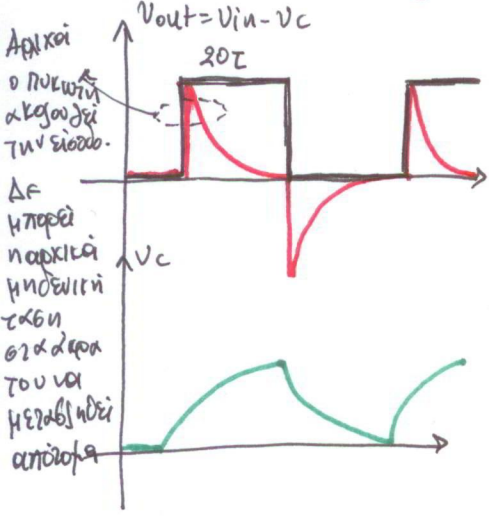 Vout = Vin - Vc
20τ
Αρχικά
ο πυκωτή
ακολουθεί
την είσοδο.
Δε
μπορεί
η αρχικά
μηδενική
τάση
στα άκρα
του να
μεταβληθεί
απότομα
Vc